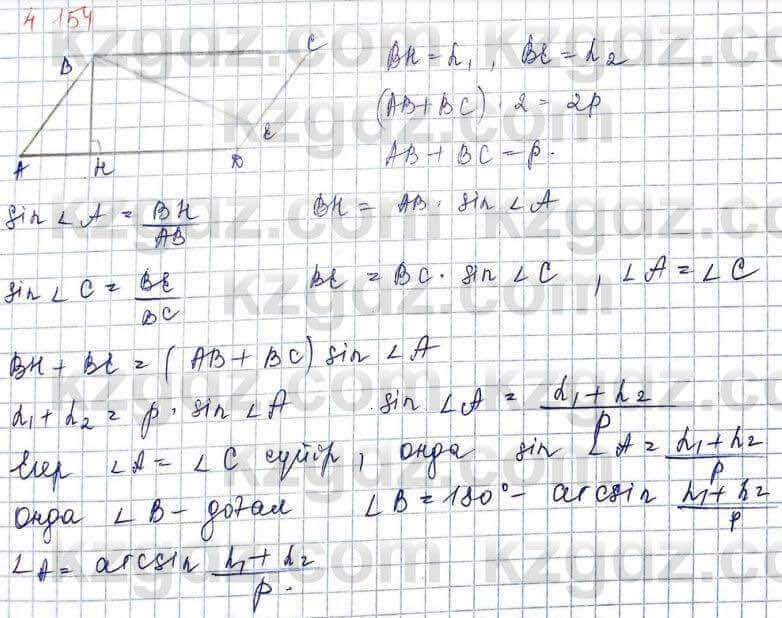 4 154
B C
BH = h₁, BE = h₂
(AB + BC) · 2 = 2p
E
A H D
AB + BC = p.
sin ∠A = BH/AB BH = AB · sin ∠A
sin ∠C = BE/BC BE = BC · sin ∠C, ∠A = ∠C
BH + BE = (AB + BC) sin ∠A
h₁ + h₂ = p · sin ∠A sin ∠A = (h₁ + h₂)/p
Егер ∠A = ∠C сүйір, онда sin ∠A = (h₁ + h₂)/p
онда ∠B - доғал ∠B = 180° - arcsin (h₁ + h₂)/p
∠A = arcsin (h₁ + h₂)/p.
kzgdz.com